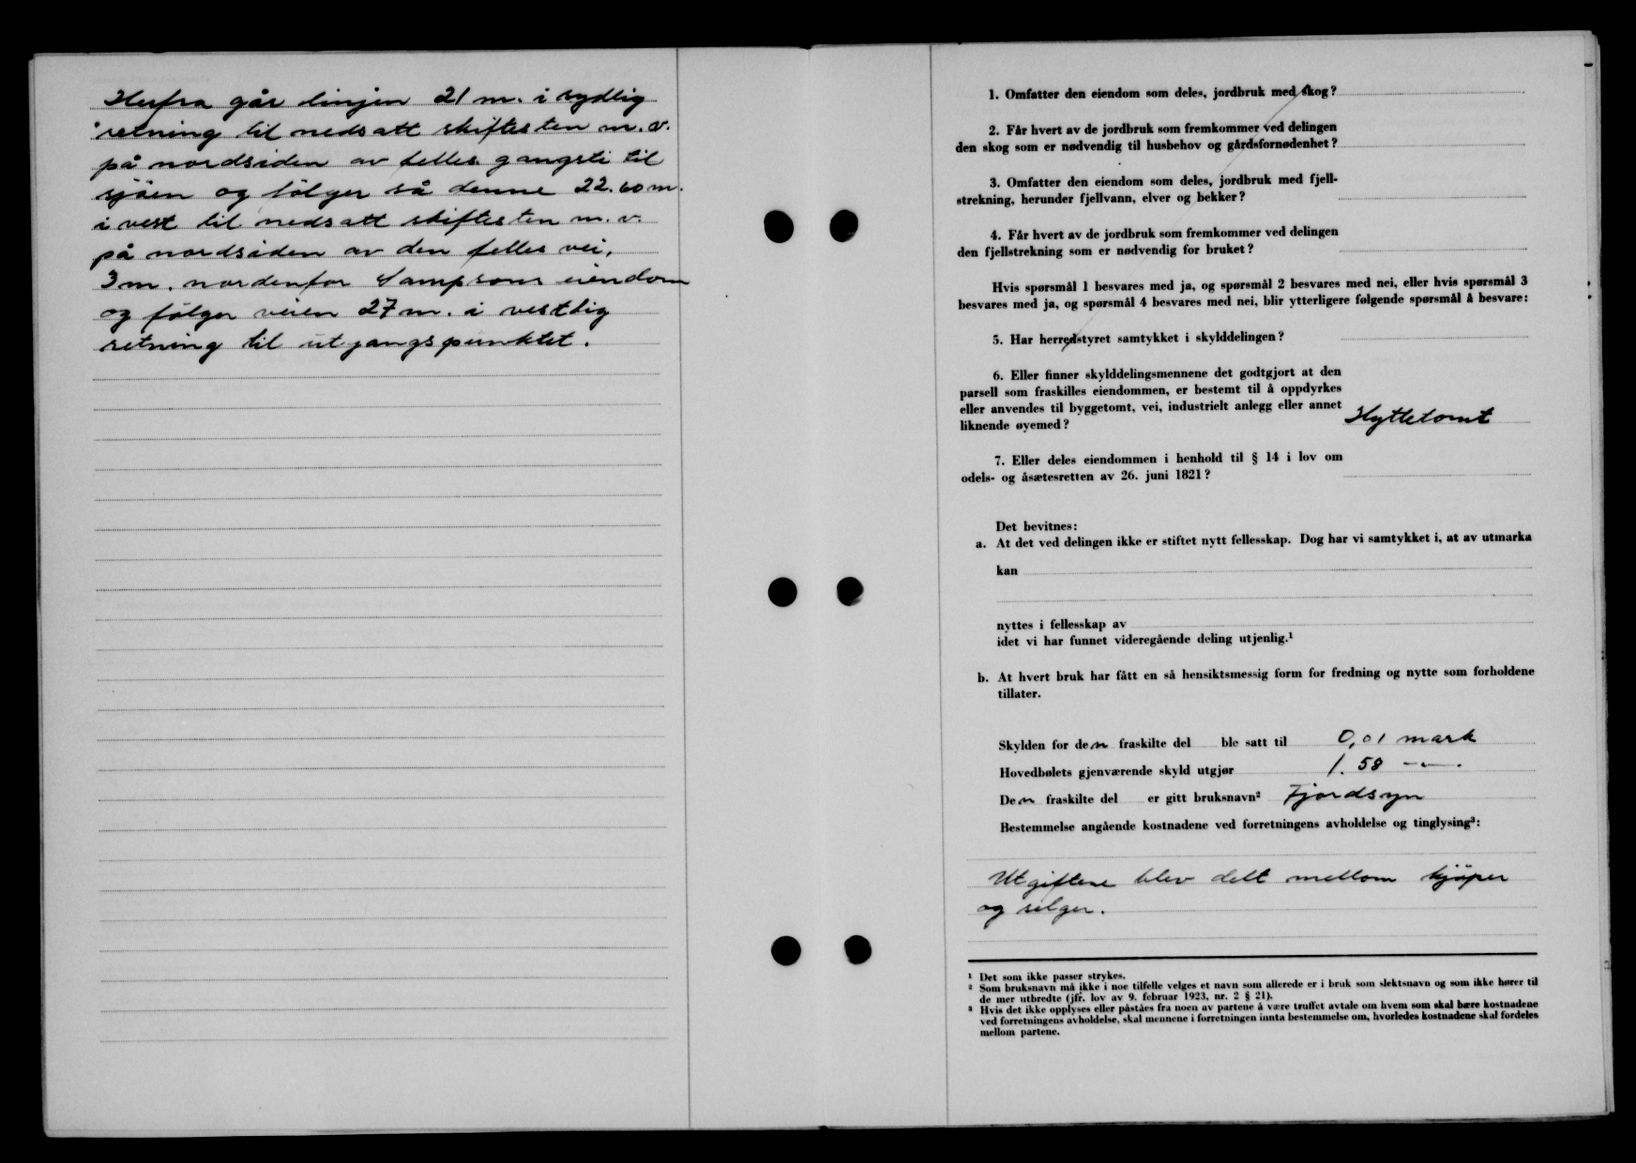 Herfra går linjen 21 m. i sydlig
retning til nedsatt skiftesten m. v.
på nordsiden av felles gangsti til
sjöen og fölger så denne 22.60 m.
i vest til nedsatt skiftesten m. v.
på nordsiden av den felles vei,
3 m. nordenfor Sampsons eiendom
og fölger veien 27 m. i vestlig
retning til utgangspunktet.
1. Omfatter den eiendom som deles, jordbruk med skog?
2. Får hvert av de jordbruk som fremkommer ved delingen
den skog som er nødvendig til husbehov og gårdsfornødenhet?
3. Omfatter den eiendom som deles, jordbruk med fjell-
strekning, herunder fjellvann, elver og bekker?
4. Får hvert av de jordbruk som fremkommer ved delingen
den fjellstrekning som er nødvendig for bruket?
Hvis spørsmål 1 besvares med ja, og spørsmål 2 besvares med nei, eller hvis spørsmål 3
besvares med ja, og spørsmål 4 besvares med nei, blir ytterligere følgende spørsmål å besvare:
5. Har herredstyret samtykket i skylddelingen?
6. Eller finner skylddelingsmennene det godtgjort at den
parsell som fraskilles eiendommen, er bestemt til å oppdyrkes
eller anvendes til byggetomt, vei, industrielt anlegg eller annet
liknende øyemed? Hyttetomt
7. Eller deles eiendommen i henhold til § 14 i lov om
odels- og åsætesretten av 26. juni 1821?
Det bevitnes:
a. At det ved delingen ikke er stiftet nytt fellesskap. Dog har vi samtykket i, at av utmarka
kan
nyttes i fellesskap av
idet vi har funnet videregående deling utjenlig.¹
b. At hvert bruk har fått en så hensiktsmessig form for fredning og nytte som forholdene
tillater.
Skylden for den fraskilte del ble satt til 0,01 mark
Hovedbølets gjenværende skyld utgjør 1.58 -"-.
Den fraskilte del er gitt bruksnavn² Fjordsyn
Bestemmelse angående kostnadene ved forretningens avholdelse og tinglysing³:
Utgiftene blev delt mellom kjöper
og selger.
¹ Det som ikke passer strykes.
² Som bruksnavn må ikke i noe tilfelle velges et navn som allerede er i bruk som slektsnavn og som ikke hører til
de mer utbredte (jfr. lov av 9. februar 1923, nr. 2 § 21).
³ Hvis det ikke opplyses eller påståes fra noen av partene å være truffet avtale om hvem som skal bære kostnadene
ved forretningens avholdelse, skal mennene i forretningen innta bestemmelse om, hvorledes kostnadene skal fordeles
mellom partene.